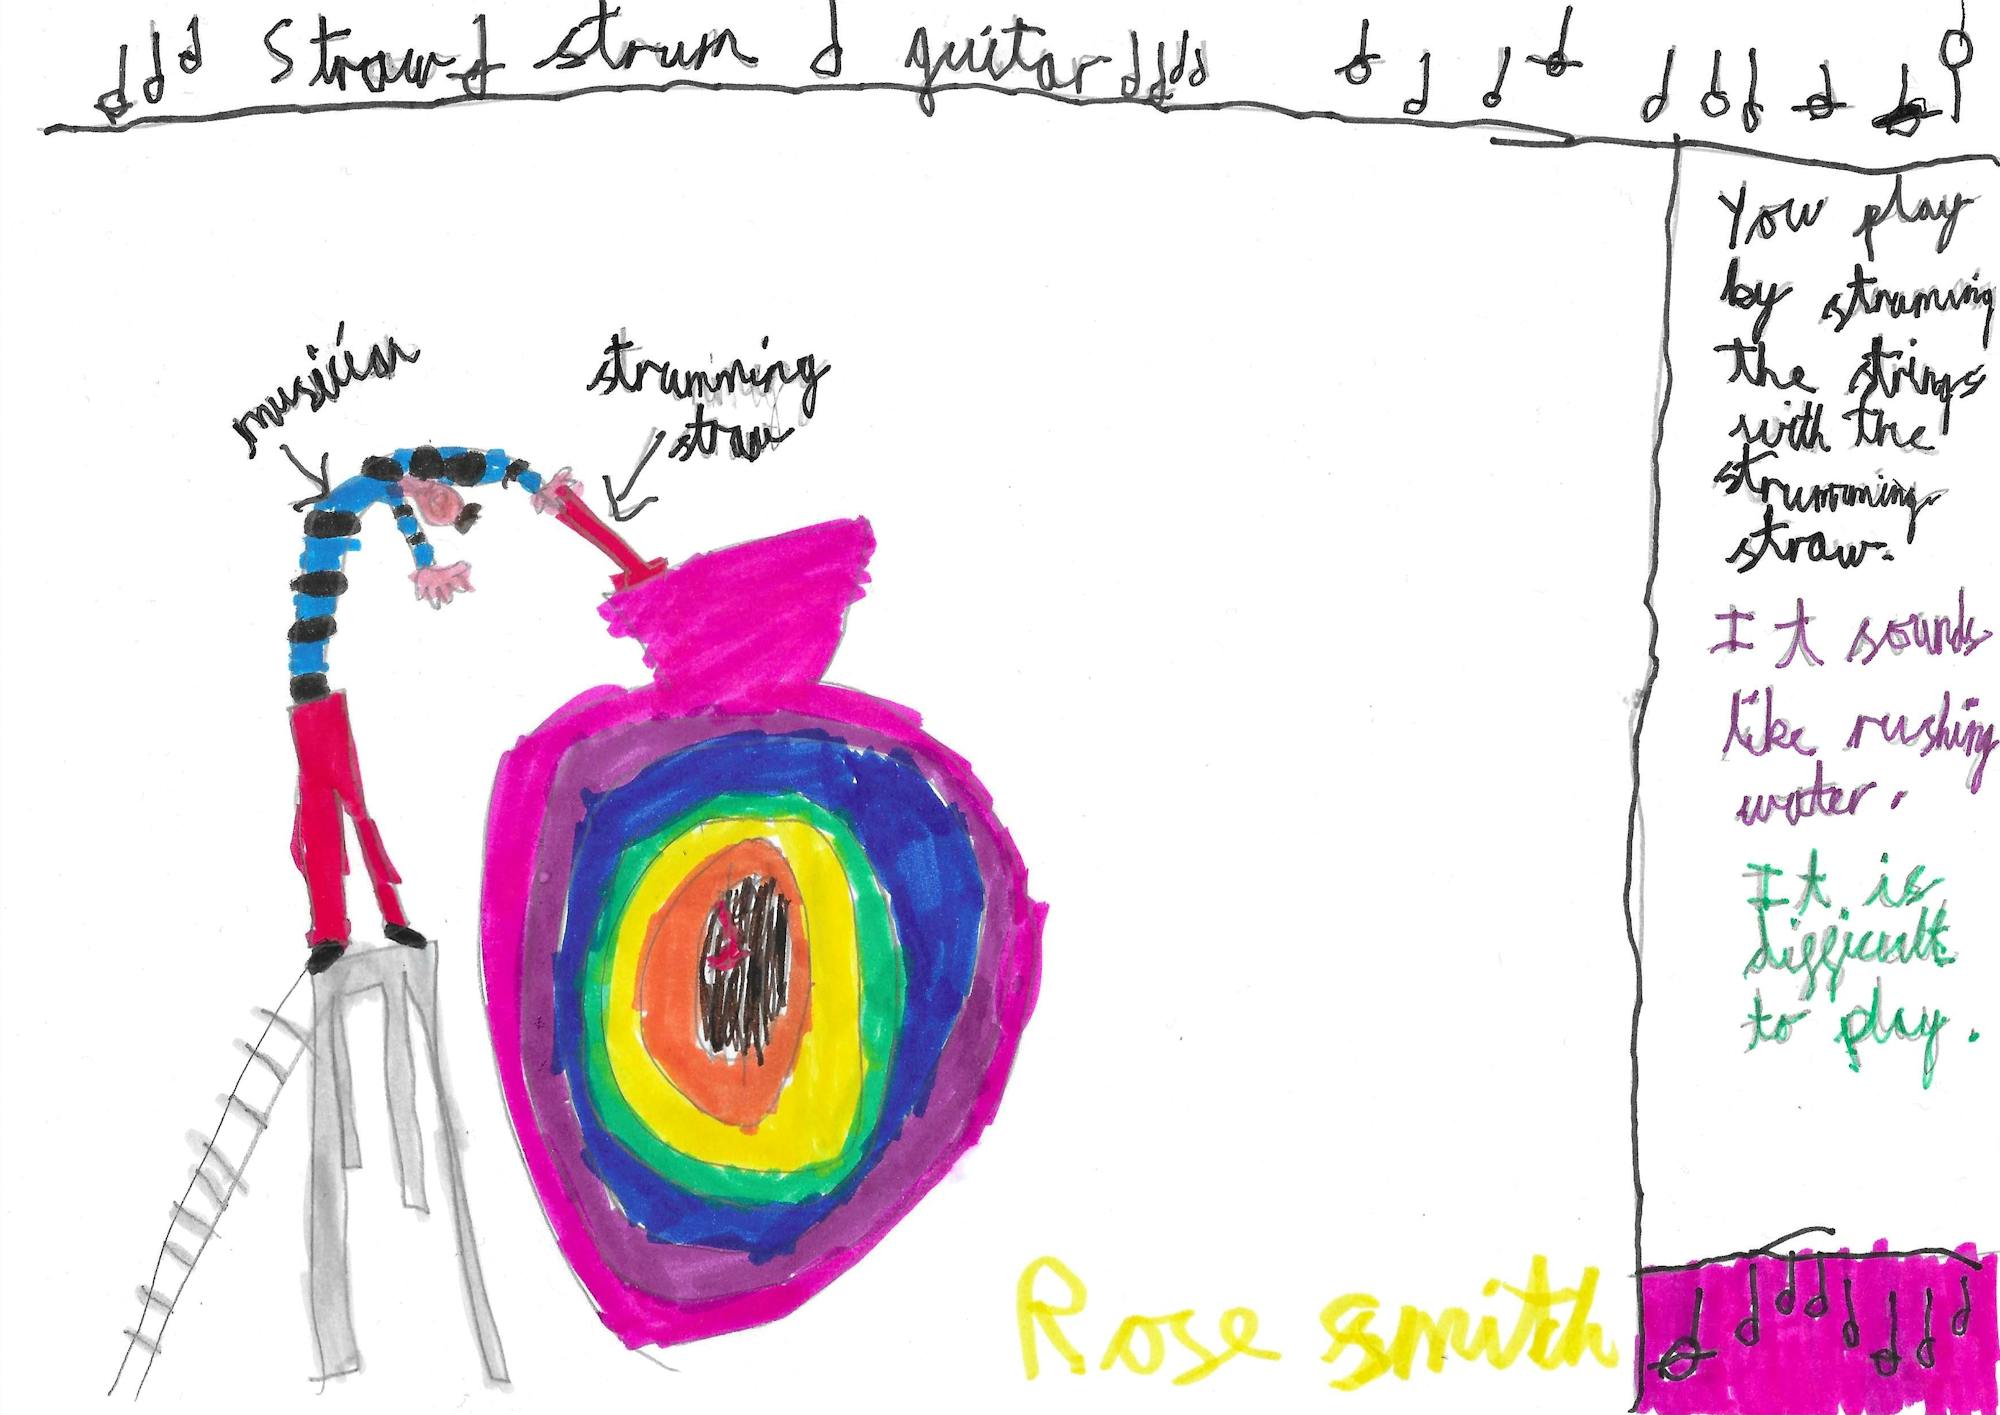 Straw strum guitar
musician
strumming
straw
You play
by struming
the strings
with the
strumming
straw.
It sounds
like rushing
water.
It is
difficult
to play.
Rose smith